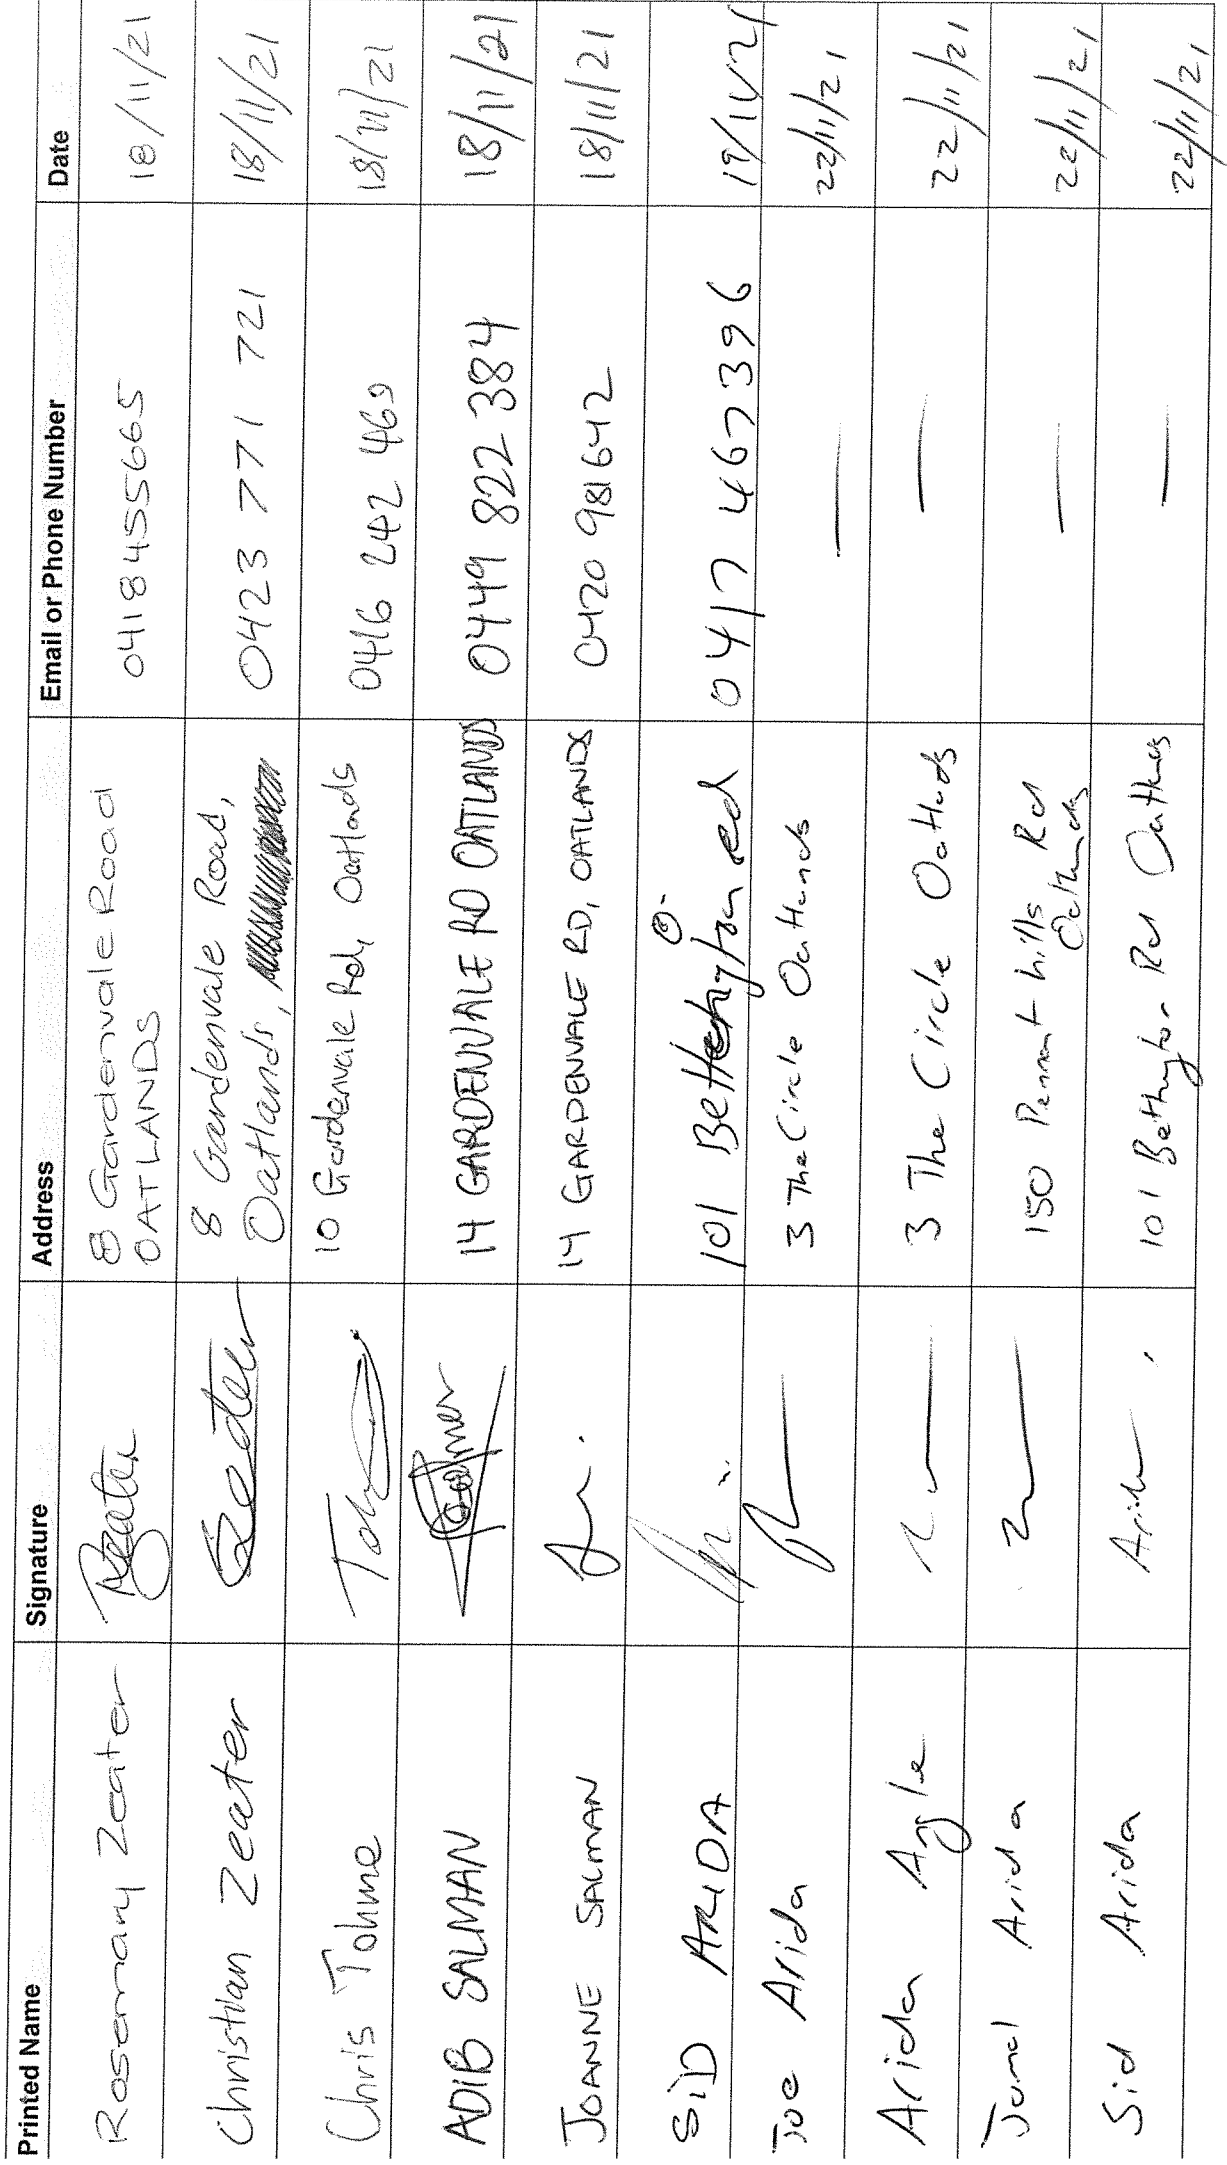 Printed Name Signature Address Email or Phone Number Date
Rosemary Zeater Rzeater 8 Gardenvale Road 0418455665 18/11/21
OATLANDS
Christian Zeater Zeater 8 Gardenvale Road, 0423 771 721 18/11/21
Oatlands,
Chris Tohme 10 Gardenvale Rd, Oatlands 0416 242 469 18/11/21
ADIB SALMAN 14 GARDENVALE RD OATLANDS 0449 822 384 18/11/21
JOANNE SALMAN 14 GARDENVALE RD, OATLANDS 0420 981642 18/11/21
SiD ARIDA 101 Bettington 0417 467396 19/11/21
Joe Arida 3 The Circle Oatlands — 22/11/21
Arida Angle 3 The Circle Oatlands — 22/11/21
Jamal Arida 150 Pennant hills Rd — 22/11/21
Oatlands
Sid Arida 101 Bettington Rd Oatlands — 22/11/21